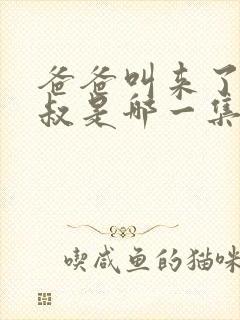 爸爸叫来了
叔是哪一集
喫咸鱼的猫咪